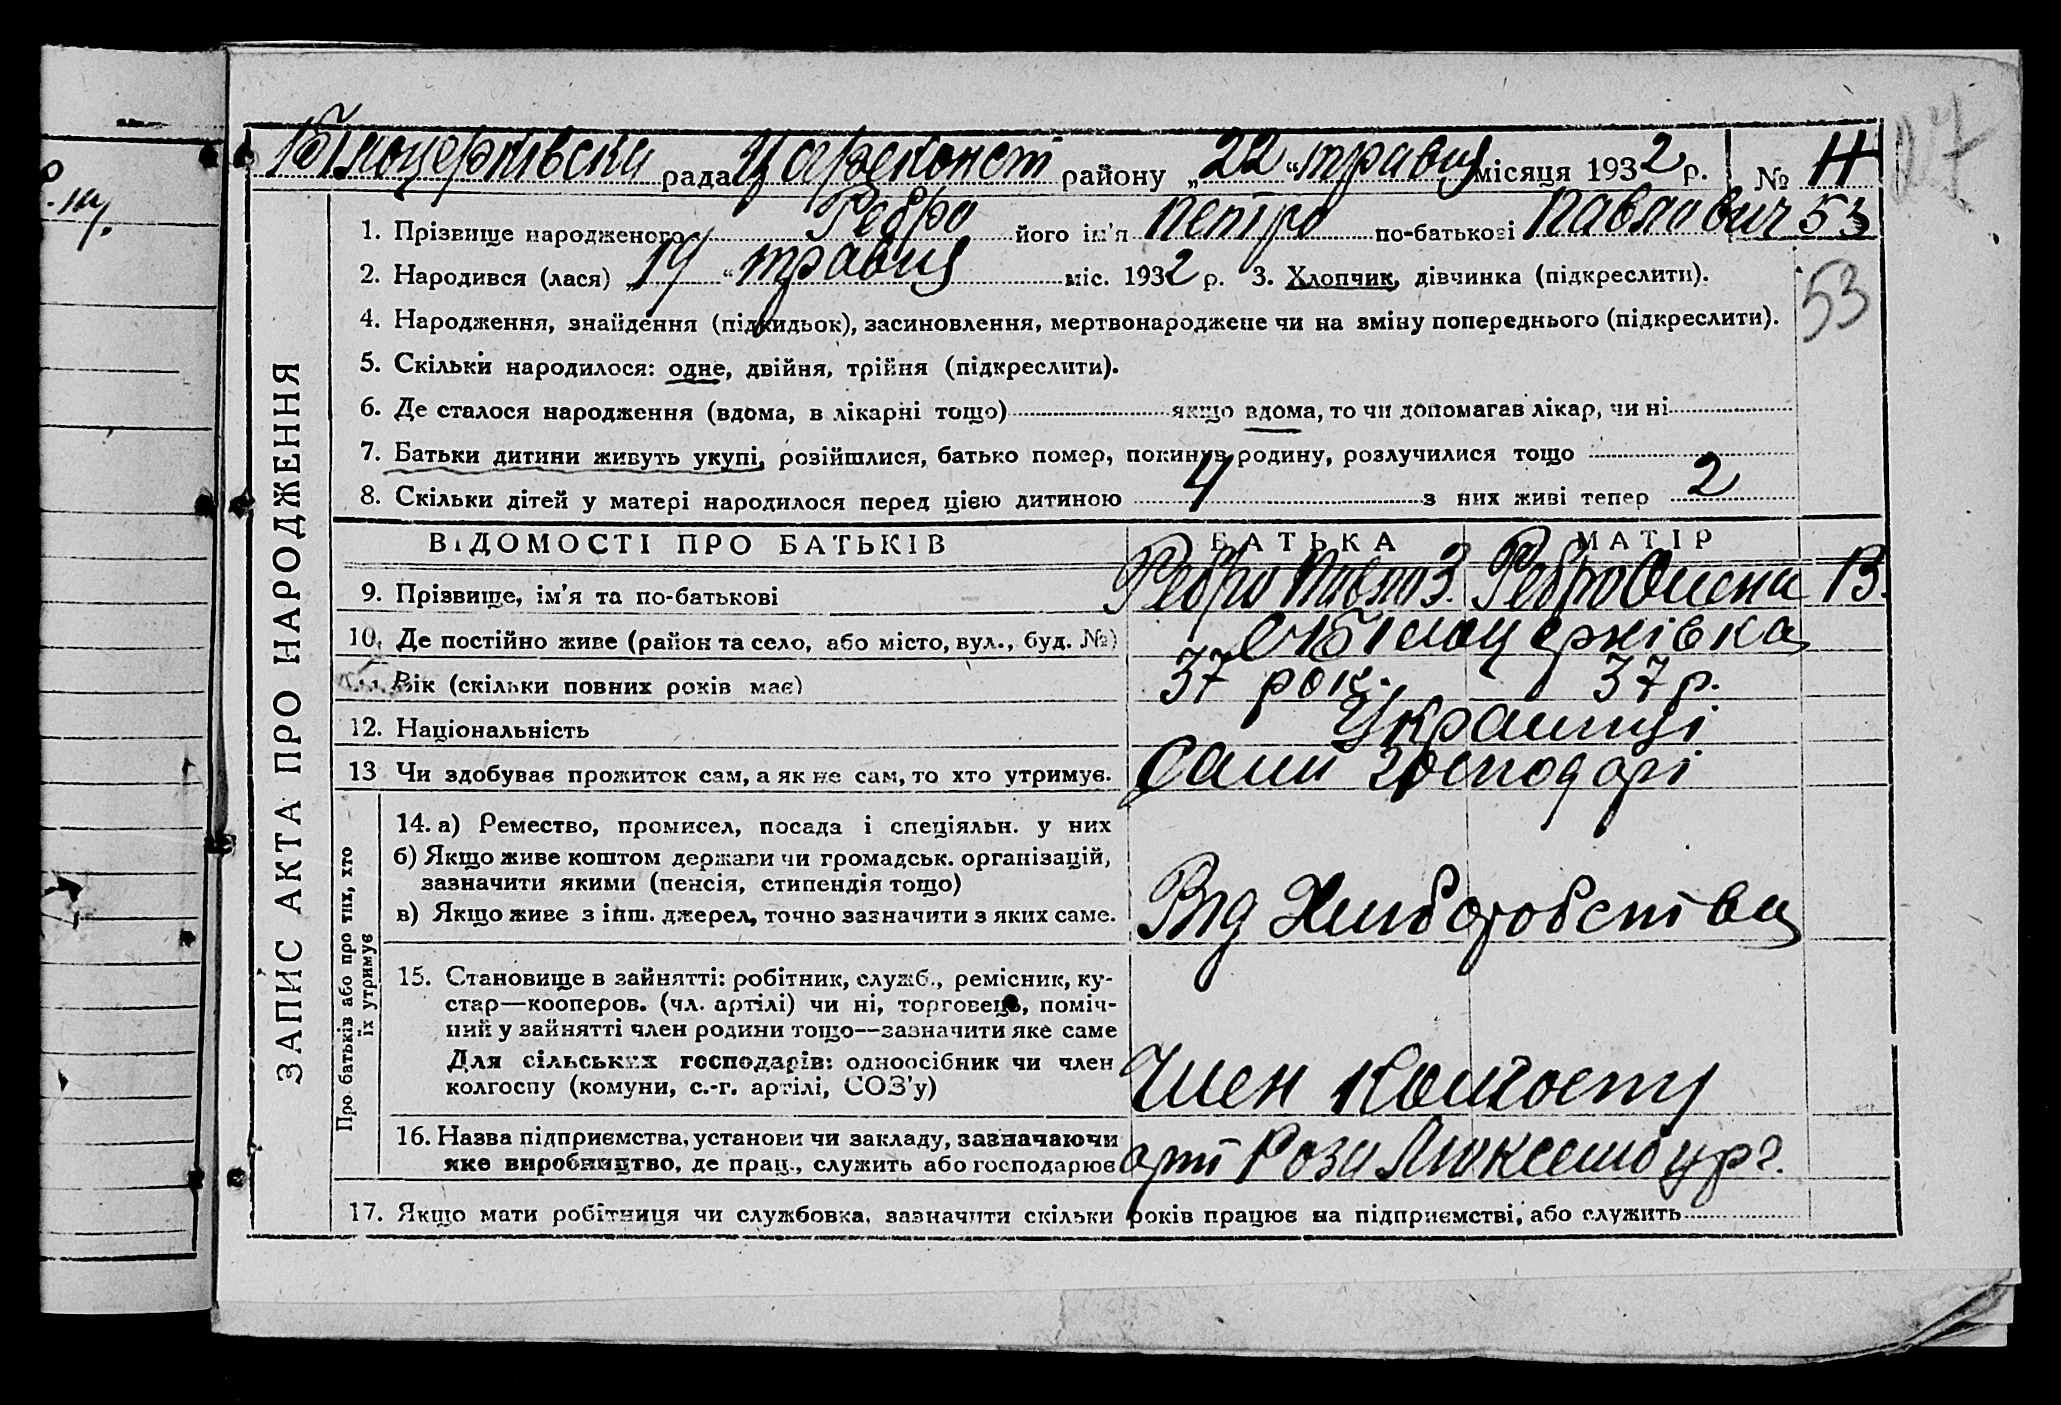 Білоцерківська рада Царекопст району „22“ травця місяця 1932 р. № 53
1. Прізвище народженого Ребро його ім'я Петро по-батькові Павлович
2. Народився (лася) „19“ травця міс. 1932 р. 3. Хлопчик, дівчинка (підкреслити).
53
4. Народження, знайдення (підкидьок), засиновлення, мертвонароджене чи на зміну попереднього (підкреслити).
5. Скільки народилося: одне, двійня, трійня (підкреслити).
6. Де сталося народження (вдома, в лікарні тощо) якщо вдома, то чи допомагав лікар, чи ні
7. Батьки дитини живуть укупі, розійшлися, батько помер, покинув родину, розлучилися тощо
8. Скільки дітей у матері народилося перед цією дитиною 4 з них живі тепер 2
ЗАПИС АКТА ПРО НАРОДЖЕННЯ
ВІДОМОСТІ ПРО БАТЬКІВ БАТЬКА МАТІР
9. Прізвище, ім'я та по-батькові Ребро Павло З. Ребро Олена В.
10. Де постійно живе (район та село, або місто, вул., буд. №) с Білоцерківка
Вік (скільки повних років має) 37 рок. 37 р.
12. Національність Українці
13 Чи здобуває прожиток сам, а як не сам, то хто утримує. Сами господарі
Про батьків або про тих, хто їх утримує
14. а) Ремество, промисел, посада і спеціяльн. у них
б) Якщо живе коштом держави чи громадськ. організацій,
зазначити якими (пенсія, стипендія тощо)
в) Якщо живе з інш. джерел, точно зазначити з яких саме.
Від Хліборобства
15. Становище в зайнятті: робітник, служб., ремісник, ку-
стар—кооперов. (чл. артілі) чи ні, торговець, поміч-
ний у зайнятті член родини тощо—зазначити яке саме
Для сільських господарів: одноосібник чи член
колгоспу (комуни, с.-г. артілі, СОЗ'у)
Член колгоспу
16. Назва підприємства, установи чи закладу, зазначаючи
яке виробництво, де прац., служить або господарює
арті Рози Люксембург.
17. Якщо мати робітниця чи службовка, зазначити скільки років працює на підприємстві, або служить